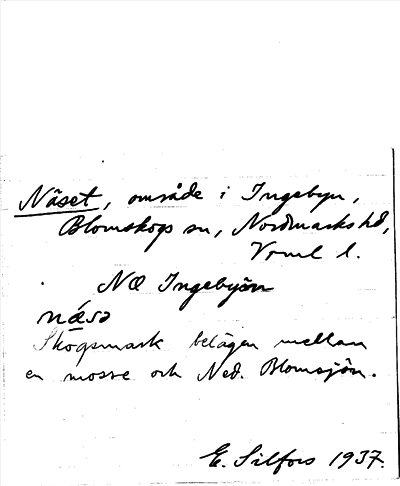 Näset, område i Ingebyn,
Blomskogs sn, Nordmarks hd,
Vrml l.
NO Ingebyön
næsə
Skogsmark belägen mellan
en mosse och Ned. Blomsjön.
E. Silfors 1937.